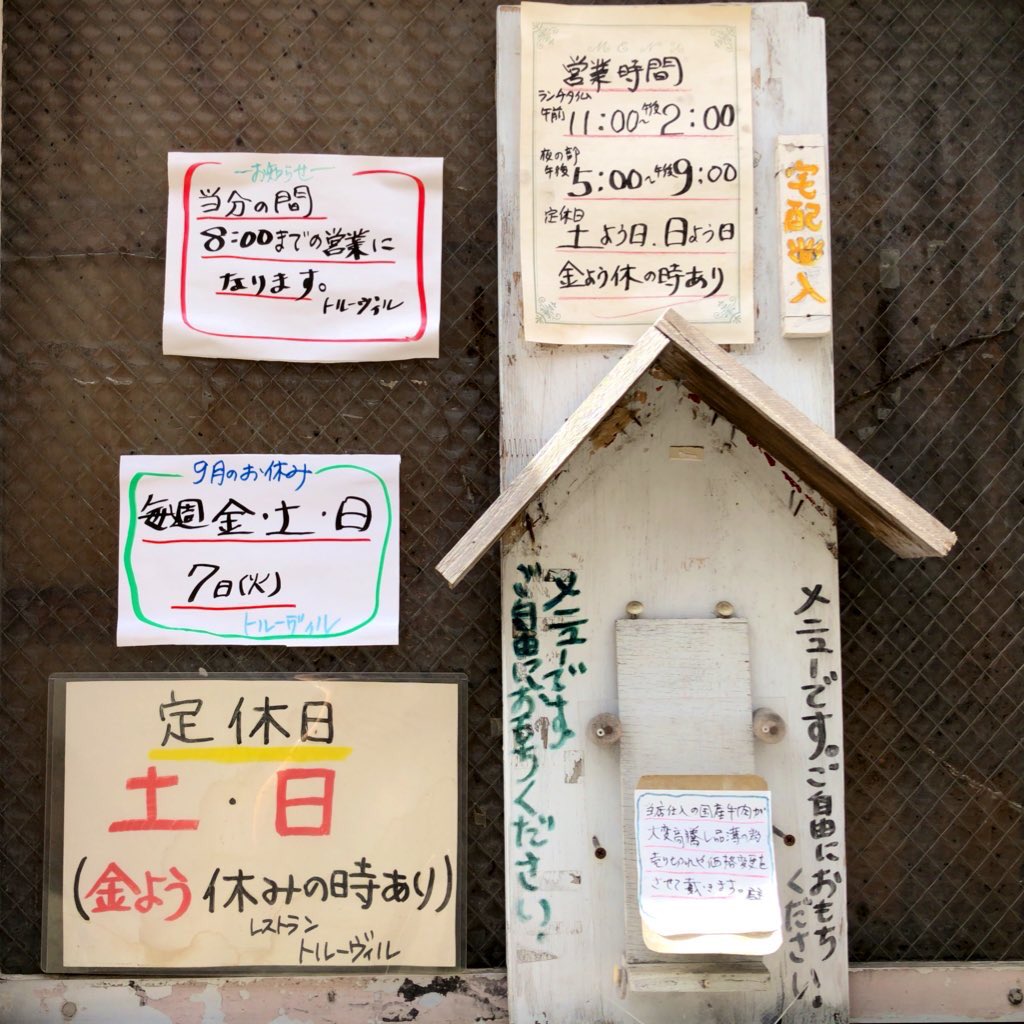 お知らせ
当分の間
8:00までの営業に
なります。
トルーヴィル
9月のお休み
毎週金・土・日
7日(火)
トルーヴィル
定休日
土・日
(金よう休みの時あり)
レストラン
トルーヴィル
MENU
営業時間
ランチタイム
午前11:00〜午後2:00
夜の部
午後5:00〜午後9:00
定休日
土よう日、日よう日
金よう休の時あり
宅配出入
メニューです
ご自由にお持ちください。
当店仕入の国産牛肉が
大変高騰し品薄の為
売り切れや価格変更を
させて戴きます。
メニューです。ご自由におもち
ください。